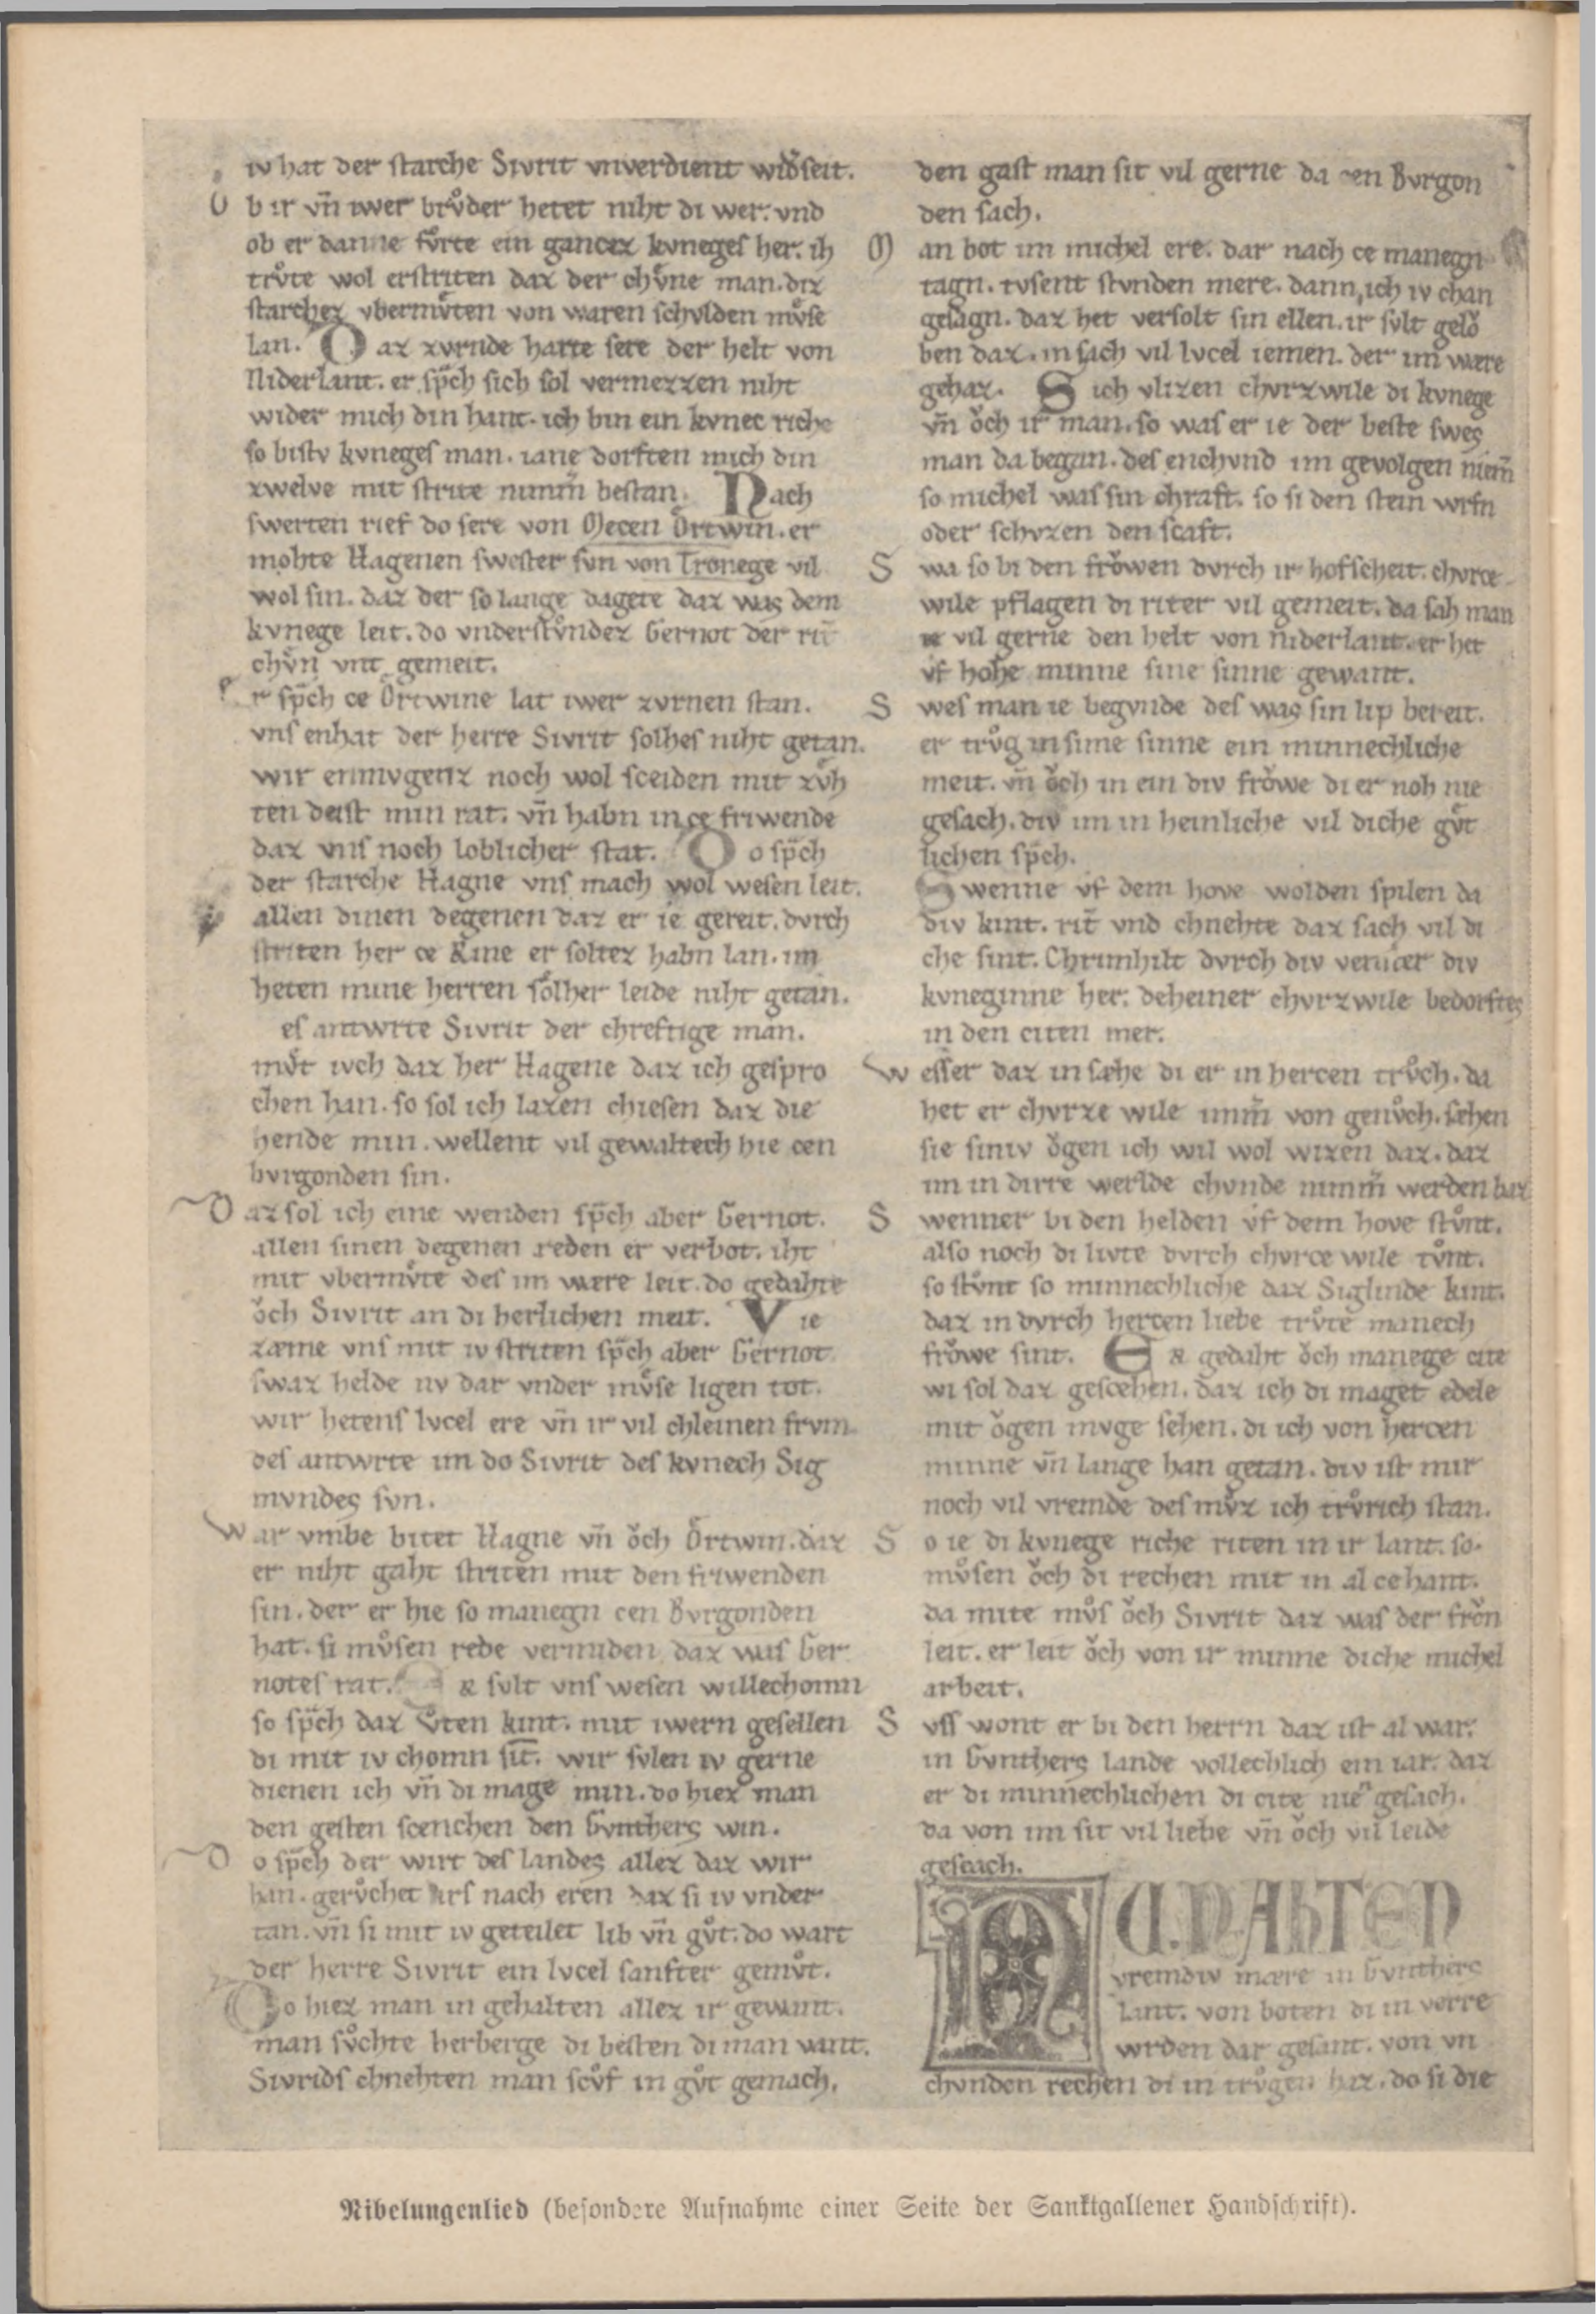 iv hat der ſtarche Sivrit vnverdient wid̾ſeit.
O b ir vn̄ iwer brvͦder hetet niht di wer. vnd
ob er danne fvͦrte ein gancez kvneges her. ih
trvͦte wol erſtriten daz der chvͤne man. diz
ſtarchez vbermvͤten von waren ſchvlden mvͤſe
lan. D az zvrnde harte ſere der helt von
Niderlant. er ſp̄ch ſich ſol vermezzen niht
wider mich din hant. ich bin ein kvnec riche
ſo biſtv kvneges man. iane dorften mich din
zwelve mit ſtrite nimm̄ beſtan. N ach
ſwerten rief do ſere von Mecen Ortwin. er
mohte Hagenen ſweſter ſvn von Tronege vil
wol ſin. daz der ſo lange dagete daz was dem
kvnege leit. do vnderſtvͦndez Gernot der rit̄
chvͤn vnt gemeit.
E r ſp̄ch ce Ortwine lat iwer zvrnen ſtan.
vnſ enhat der herre Sivrit ſolhes niht getan.
wir enmvgenz noch wol ſceiden mit zvͤh
ten deiſt min rat. vn̄ habn in ce friwende
daz vnſ noch loblicher ſtat. D o ſp̄ch
der ſtarche Hagne vnſ mach wol weſen leit.
allen dinen degenen daz er ie gereit. dvrch
ſtriten her ce Rine er ſoltez habn lan. im
heten mine herren ſoͤlher leide niht getan.
eſ antwrte Sivrit der chreftige man.
mvͤt ivch daz her Hagene daz ich geſpro
chen han. ſo ſol ich lazen chieſen daz die
hende min. wellent vil gewaltech hie cen
bvrgonden ſin.
D az ſol ich eine wenden ſp̄ch aber Gernot.
allen ſinen degenen reden er verbot. iht
mit vbermvͤte des im wære leit. do gedahte
oͮch Sivrit an di herlichen meit. V ie
zæme vnſ mit iv ſtriten ſp̄ch aber Gernot
ſwaz helde nv dar vnder mvͤſe ligen tot.
wir hetenſ lvcel ere vn̄ ir vil chleinen frvm.
des antwrte im do Sivrit des kvnech Sig
mvndes ſvn.
W ar vmbe bitet Hagne vn̄ oͮch Ortwin. daz
er niht gaht ſtriten mit den friwenden
ſin. der er hie ſo manegn cen Bvrgonden
hat. ſi mvͤſen rede vermiden daz was Ger
notes rat. & ſvlt vnſ weſen willechomn
ſo ſp̄ch daz Vͦten kint. mit iwern geſellen
di mit iv chomn ſit. wir ſvlen iv gerne
dienen ich vn̄ di mage min. do hiez man
den geſten ſcenchen den Gvnthers win.
D o ſp̄ch der wirt des landes allez daz wir
han. gervͦchet irſ nach eren daz ſi iv vnder
tan. vn̄ ſi mit iv geteilet lib vn̄ gvͦt. do wart
der herre Sivrit ein lvcel ſanfter gemvͦt.
D o hiez man in gehalten allez ir gewant.
man ſvͦchte herberge di beſten di man vant.
Sivridſ chnehten man ſcvͦf in gvͦt gemach.
den gaſt man ſit vil gerne da cen Bvrgon
den ſach.
M an bot im michel ere. dar nach ce manegn
tagn. tvſent ſtvnden mere. dann ich iv chan
geſagn. daz het verſolt ſin ellen. ir ſvlt geloͮ
ben daz. in ſach vil lvcel iemen. der im wære
gehaz. S ich vlizen chvrzwile di kvnege
vn̄ oͮch ir man. ſo was er ie der beſte ſwes
man da began. des enchvnd im gevolgen niem̄
ſo michel was ſin chraft. ſo ſi den ſtein wrfn
oder ſchvzen den ſcaft.
S wa ſo bi den froͮwen dvrch ir hofſcheit. chvrce
wile pflagen di riter vil gemeit. da ſah man
ie vil gerne den helt von niderlant. er het
vf hohe minne ſine ſinne gewant.
S wes man ie begvnde des was ſin lip bereit.
er trvͦg in ſime ſinne ein minnechliche
meit. vn̄ oͮch in ein div froͮwe di er noh nie
geſach. div im in heinliche vil diche gvͤt
lichen ſp̄ch.
S wenne vf dem hove wolden ſpilen da
div kint. rit̄ vnd chnehte daz ſach vil di
che ſint. Chrimhilt dvrch div venſter div
kvneginne her. deheiner chvrzwile bedorftes
in den citen mer.
W eſſer daz in ſæhe di er in hercen trvͦch. da
het er chvrze wile imm̄ von genvͦch. ſæhen
ſie ſiniv oͮgen ich wil wol wizen daz. daz
im in dirre werlde chvnde nimm̄ werden baz
S wenner bi den helden vf dem hove ſtvͦnt.
alſo noch di livte dvrch chvrce wile tvͦnt.
ſo ſtvͦnt ſo minnechliche daz Siglinde kint.
daz in dvrch hercen liebe trvͦte manech
froͮwe ſint. E & gedaht oͮch manege cite
wi ſol daz geſcehen. daz ich di maget edele
mit oͮgen mvge ſehen. di ich von hercen
minne vn̄ lange han getan. div iſt mir
noch vil vremde des mvͦz ich trvͦrich ſtan.
S o ie di kvnege riche riten in ir lant. ſo
mvͦſen oͮch di rechen mit in al cehant.
da mite mvͦſ oͮch Sivrit daz was der froͮn
leit. er leit oͮch von ir minne diche michel
arbeit.
S vſſ wont er bi den herrn daz iſt al war.
in Gvnthers lande vollechlich ein iar. daz
er di minnechlichen di cite nie geſach.
da von im ſit vil liebe vn̄ oͮch vil leide
geſcach.
NV. NAHTEN
vremdiv mære in Gvnthers
lant. von boten di in verre
wrden dar geſant. von vn
chvnden rechen di in trvͦgen haz. do ſi die
Nibelungenlied (beſondere Aufnahme einer Seite der Sanktgallener Handſchrift).